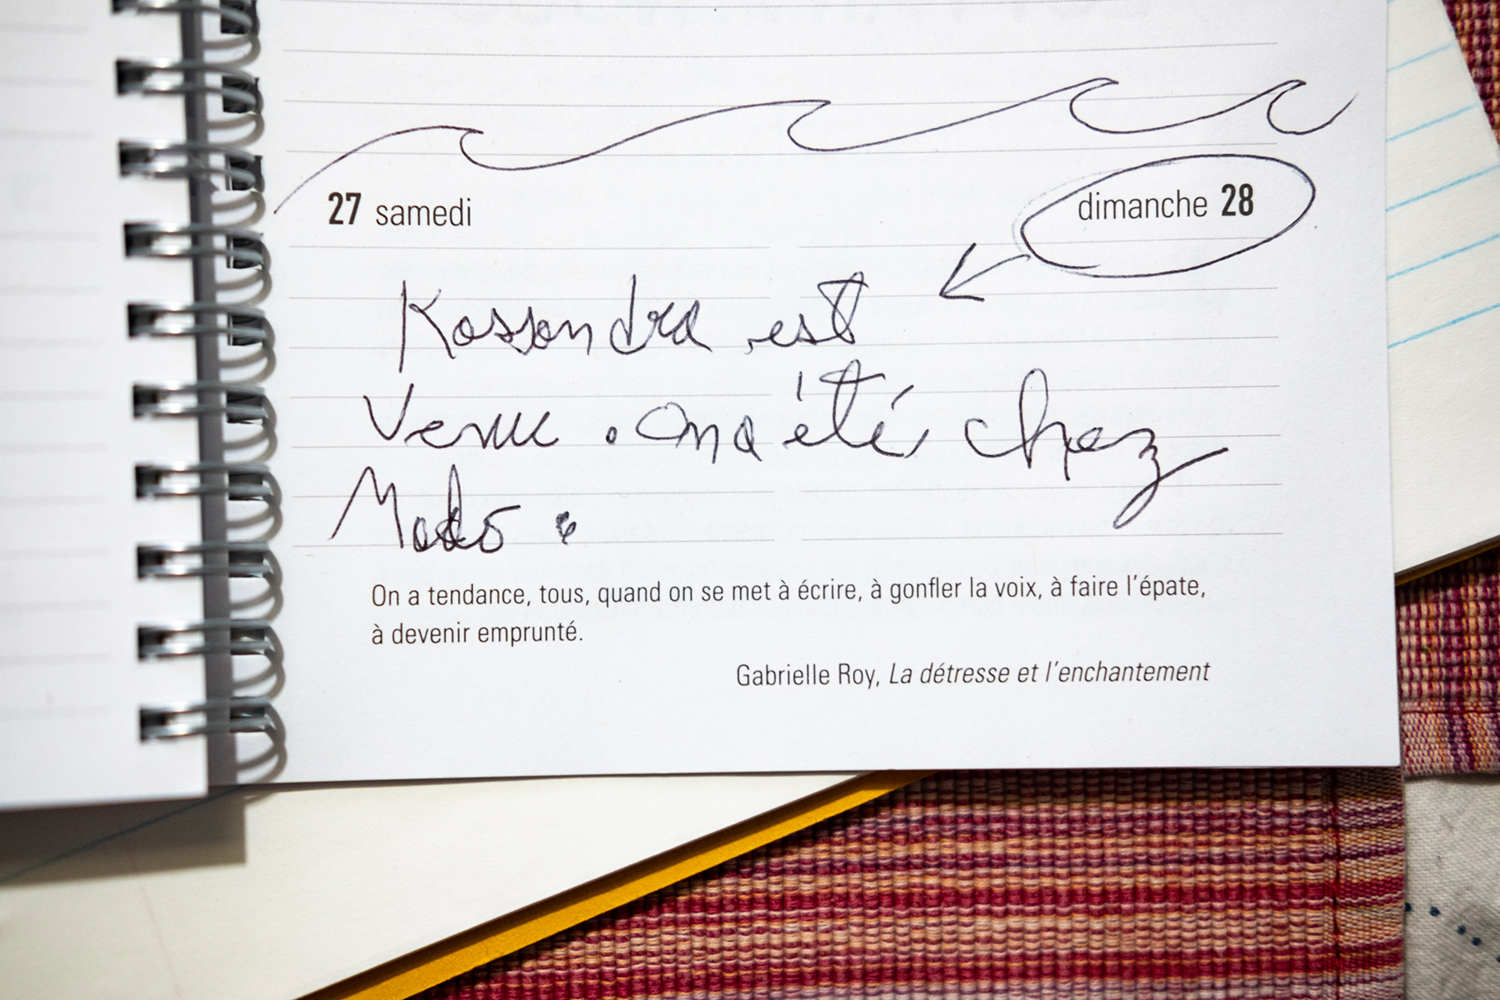 27 samedi
dimanche 28
Kassandra est
venue. On a été chez
Mado.
On a tendance, tous, quand on se met à écrire, à gonfler la voix, à faire l'épate,
à devenir emprunté.
Gabrielle Roy, La détresse et l'enchantement